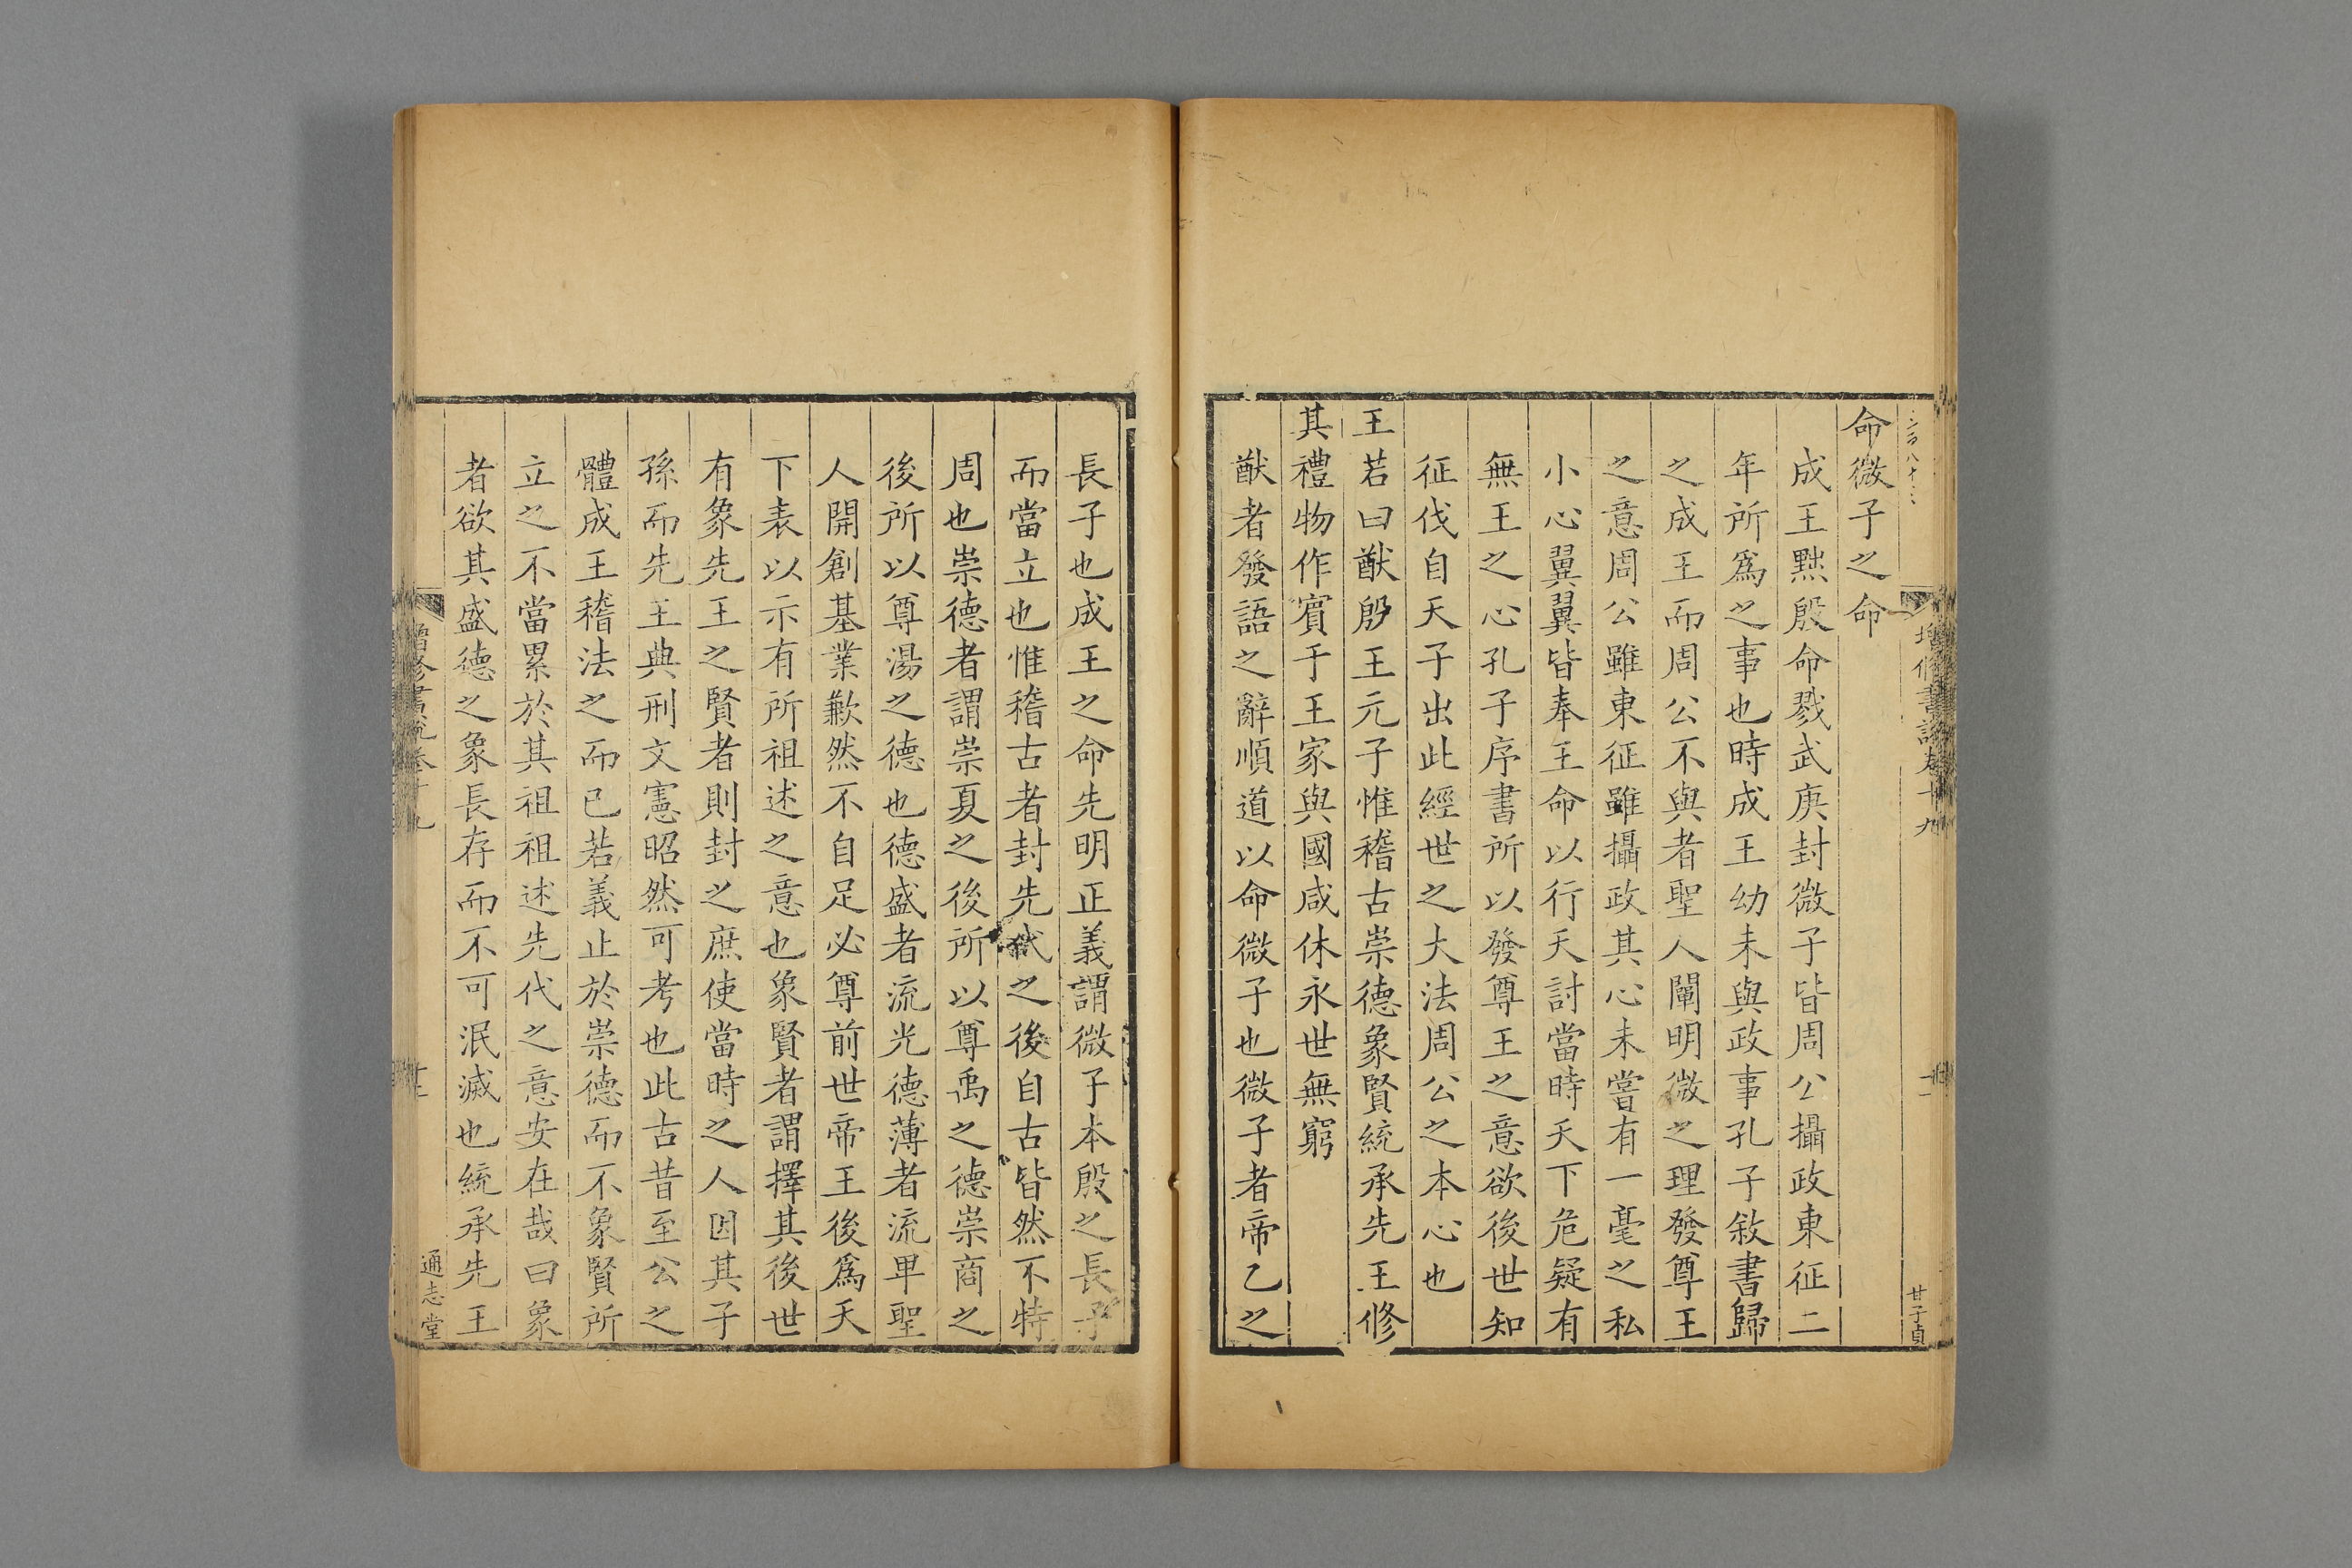 命微子之命
成王黜殷命戮武庚封微子皆周公攝政東征二
年所爲之事也時成王幼未與政事孔子敘書歸
之成王而周公不與者聖人闡明微之理發尊王
之意周公雖東征雖攝政其心未嘗有一毫之私
小心翼翼皆奉王命以行天討當時天下危疑有
無王之心孔子序書所以發尊王之意欲後世知
征伐自天子出此經世之大法周公之本心也
王若曰猷殷王元子惟稽古崇德象賢統承先王修
其禮物作賓于王家與國咸休永世無窮
猷者發語之辭順道以命微子也微子者帝乙之
長子也成王之命先明正義謂微子本殷之長子
而當立也惟稽古者封先代之後自古皆然不特
周也崇德者謂崇夏之後所以尊禹之德崇商之
後所以尊湯之德也德盛者流光德薄者流卑聖
人開創基業歉然不自足必尊前世帝王後爲天
下表以示有所祖述之意也象賢者謂擇其後世
有象先王之賢者則封之庶使當時之人因其子
孫而先王典刑文憲昭然可考也此古昔至公之
體成王稽法之而已若義止於崇德而不象賢所
立之不當累於其祖祖述先代之意安在哉曰象
者欲其盛德之象長存而不可泯滅也統承先王
增修書說卷十九
甘子貞
增修書說卷十九
通志堂